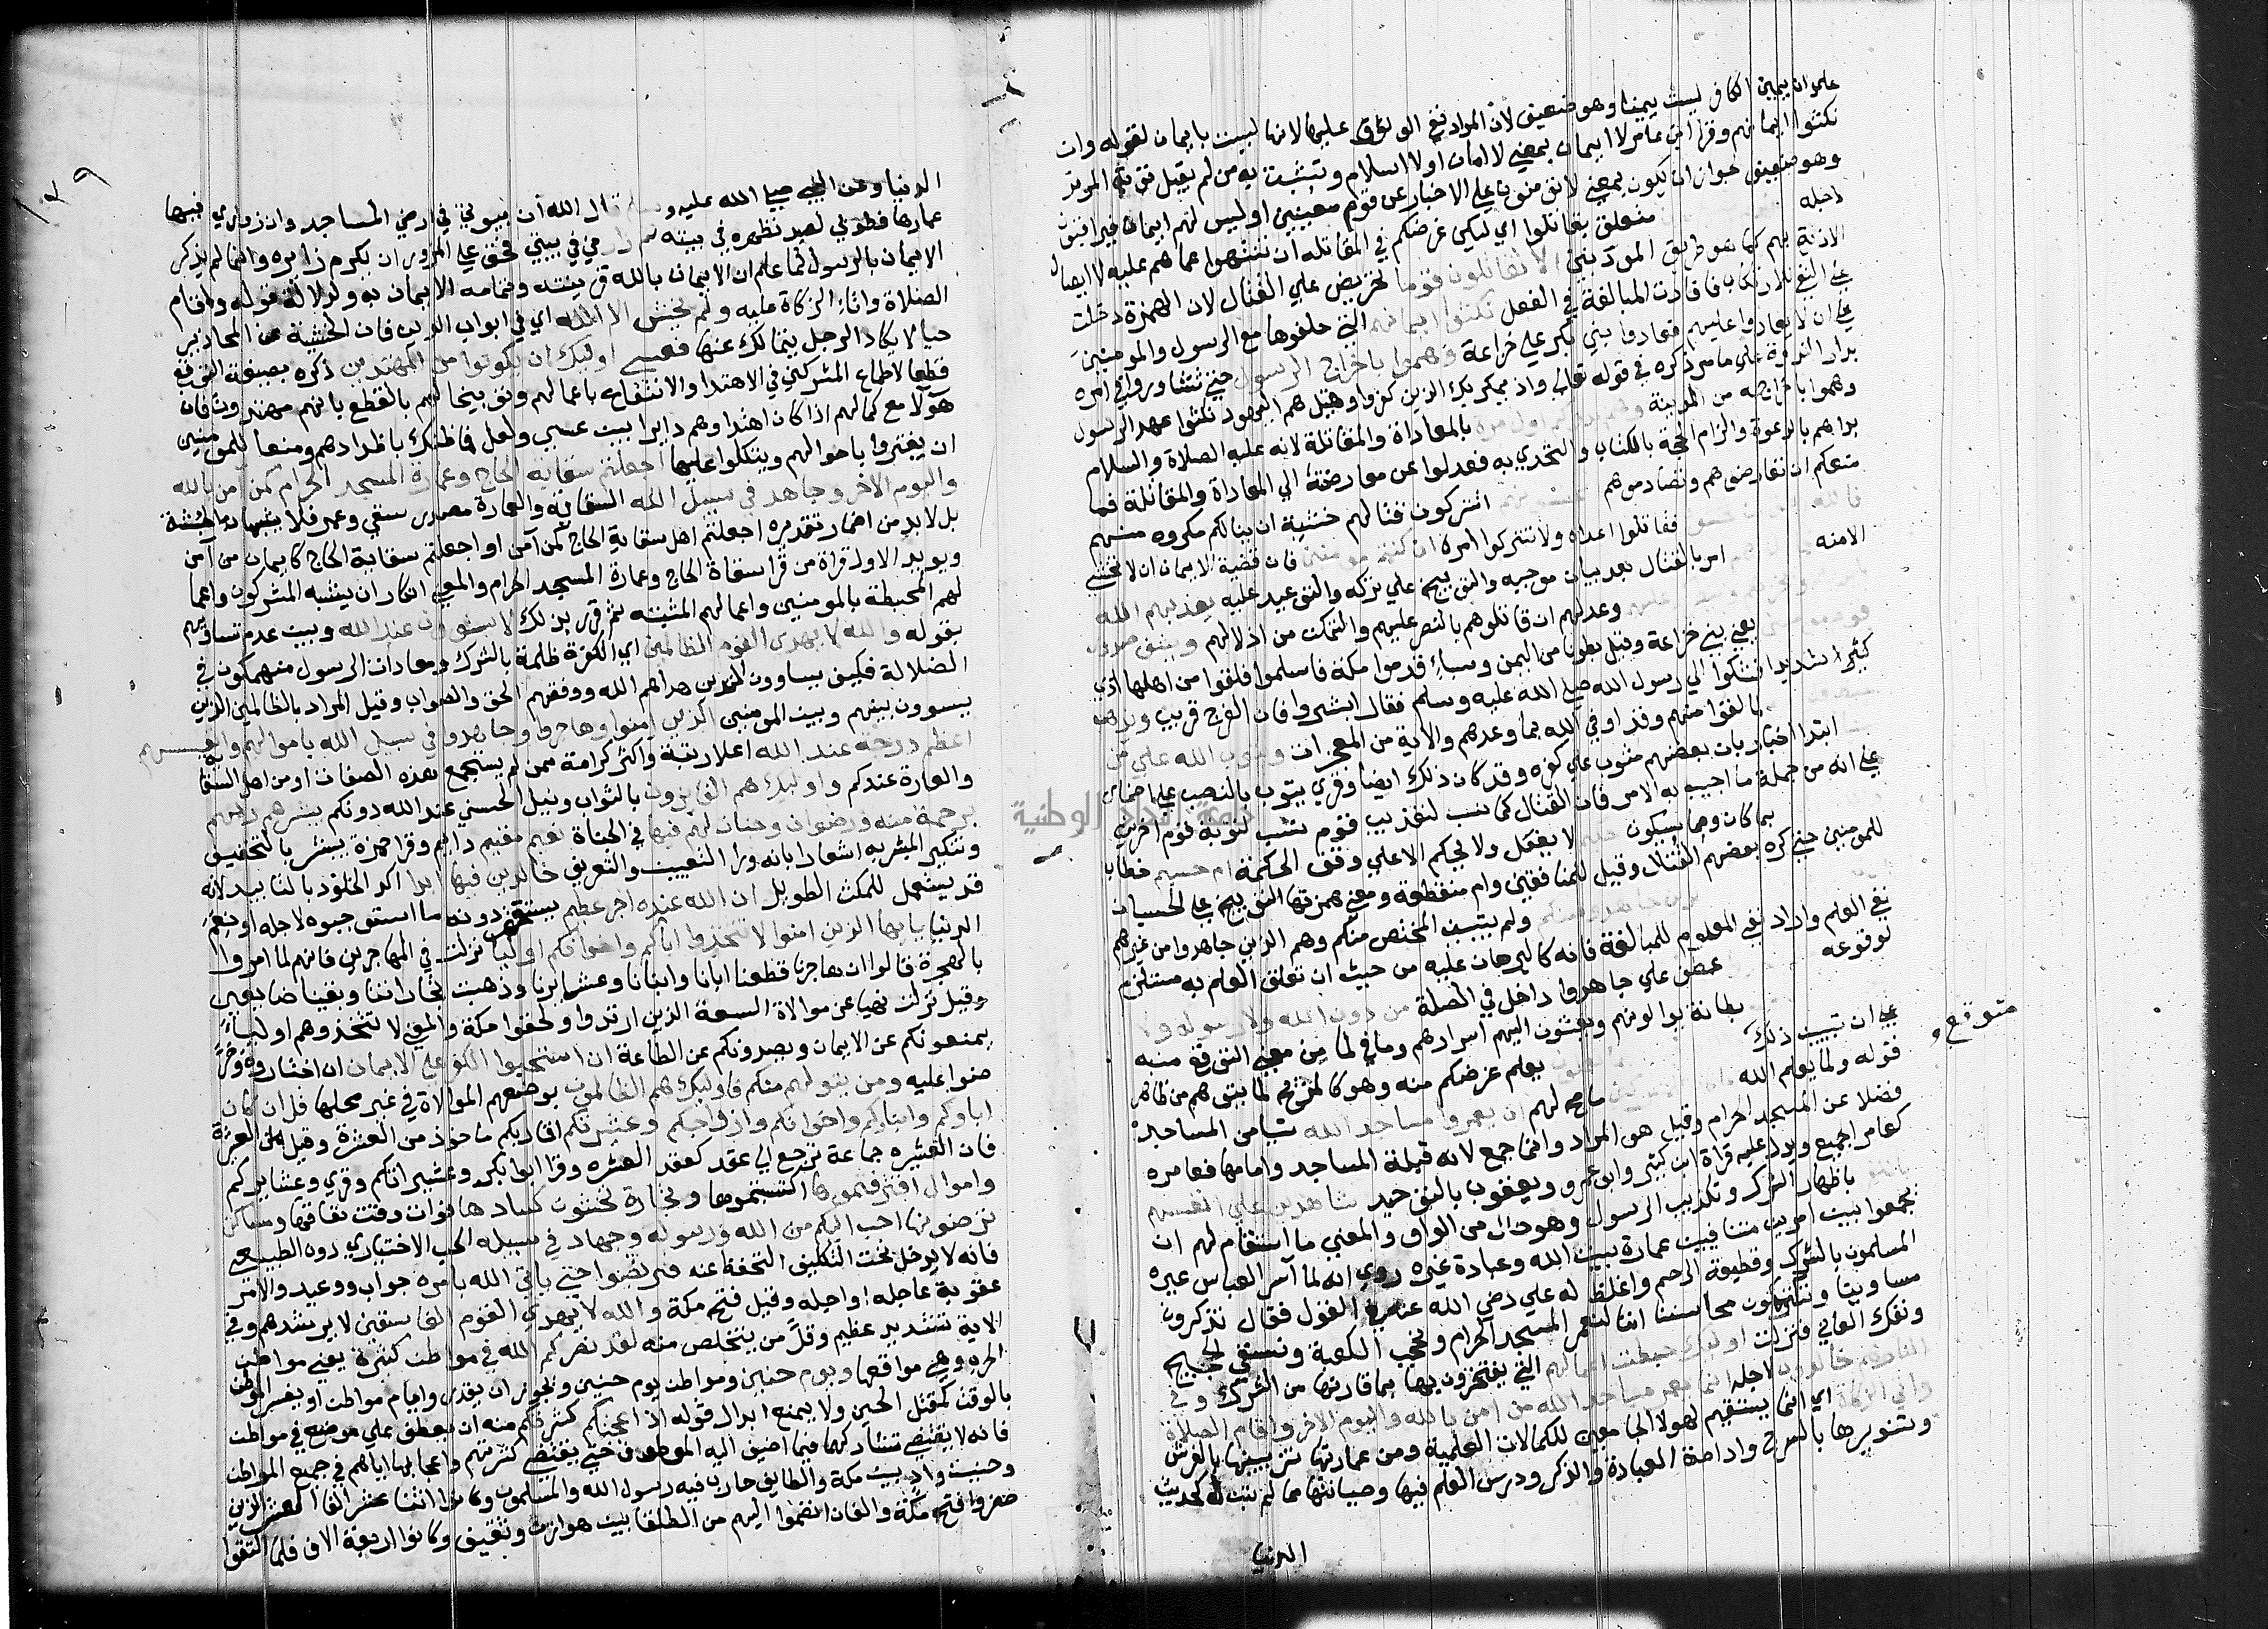 علي ان يمين الكافر ليست يمينا وهو ضعيف لان المراد نفي الوثوق عليها لانها ليست بايمان لقوله وان
نكثوا ايمانهم وقرا ابن عامر لا ايمان بمعني لا امان او لا اسلام وتشبث به من لم يقبل توبة المرتد
وهو ضعيف لجواز ان يكون بمعني لا يؤمنون علي الاخبار عن قوم معينين او ليس لهم ايمان فيراقبون
لاجله متعلق بقاتلوا اي ليكن غرضكم في المقاتلة ان ينتهوا عما هم عليه لا ايصال
الاذية بهم كما هو طريق الموذين الا تقاتلون قوما تحريض علي القتال لان الهمزة دخلت
علي النفي للانكار فافادت المبالغة في الفعل نكثوا ايمانهم التي حلفوها مع الرسول والمومنين
علي ان لا يعاونوا عليهم فعاونوا بني بكر علي خزاعة وهموا باخراج الرسول حين تشاوروا في امره
بدار الندوة علي ما مر ذكره في قوله تعالي واذ يمكر بك الذين كفروا وقيل هم اليهود نكثوا عهد الرسول
وهموا باخراجه من المدينة وهم بدؤكم اول مرة بالمعاداة والمقاتلة لانه عليه الصلاة والسلام
بداهم بالدعوة والزام الحجة بالكتاب والتحدي به فعدلوا عن معارضته الي المعاداة والمقاتلة فما
منعكم ان تعارضوهم وتصادموهم اتخشونهم اتتركون قتالهم خشية ان ينالكم مكروه منهم
فالله احق ان تخشوه فقاتلوا اعداه ولا تتركوا امره ان كنتم مومنين فان قضية الايمان ان لا يخشي
الا منه امر بالقتال بعد بيان موجبه والتوبيخ علي تركه والتوعيد عليه يعذبهم الله
وعد لهم ان قاتلوهم بالنصر عليهم والتمكن من اذلالهم ويشف صدور
قوم مومنين يعني بني خزاعة وقيل بطونا من اليمن وسباء قدموا مكة فاسلموا فلقوا من اهلها اذي
كثيرا شديدا فشكوا الي رسول الله صلي الله عليه وسلم فقال ابشروا فان الفرج قريب ويذهب
لما لقوا منهم وقد اوفي الله بما وعدهم والاية من المعجزات ويتوب الله علي من
ابتدا اخبار بان بعضهم يتوب عن كفره وقد كان ذلك ايضا وقري يتوب بالنصب علي اضمار ان
علي انه من جملة ما اجيب به الامر فان القتال كما تسبب لتعذيب قوم تسبب لتوبة قوم اخرين
بما كان وما سيكون لا يفعل ولا يحكم الا علي وفق الحكمة ام حسبتم خطاب
للمومنين حين كره بعضهم القتال وقيل للمنافقين وام منقطعة ومعني همزتها التوبيخ علي الحسبان
ولم يتبين المخلص منكم وهم الذين جاهدوا من غيرهم
نفي العلم واراد نفي المعلوم للمبالغة فانه كالبرهان عليه من حيث ان تعلق العلم به مستلزم
لوقوعه عطف علي جاهدوا داخل في الصلة من دون الله ولا رسوله ولا
بطانة يوالونهم ويفشون اليهم اسرارهم وما في لما من معني التوقع منبه
علي ان تبيين ذلك متوقع يعلم غرضكم منه وهو كالمزيح لما يتوهم من ظاهر
قوله ولما يعلم الله ما صح لهم ان يعمروا مساجد الله شيا من المساجد
فضلا عن المسجد الحرام وقيل هو المراد وانما جمع لانه قبلة المساجد وامامها فعامره
كعامر الجميع ويدل عليه قراة ابن كثير وابن عمرو ويعقوب بالتوحيد شاهدين علي انفسهم
باظهار الشرك وتكذيب الرسول وهو حال من الواو والمعني ما استقام لهم ان
يجمعوا بين امرين متنافيين عمارة بيت الله وعبادة غيره روي انه لما اسر العباس عيره
المسلمون بالشرك وقطيعة الرحم واغلظ له علي رضي الله عنه في القول فقال تذكرون
مساوينا وتكتمون محاسننا اننا لنعمر المسجد الحرام ونحجب الكعبة ونسقي الحجيج
ونفك العاني فنزلت اوليك حبطت اعمالهم التي يفتخرون بها بما قارنها من الشرك وفي
النار هم خالدون لاجله انما يعمر مساجد الله من امن بالله واليوم الاخر واقام الصلاة
واتي الزكاة اي انما يستقيم لهولا الجامعين للكمالات العلمية ومن عمارتها تزيينها بالفرش
وتنويرها بالسرج وادامة العبادة والذكر ودرس العلم فيها وصيانتها مما لم تبن له كحديث
الدنيا
الدنيا وعن النبي صلي الله عليه وسلم قال الله ان بيوتي في ارضي المساجد وان زواري فيها
عمارها فطوبي لعبد تطهر في بيته ثم زارني في بيتي فحق علي المزور ان يكرم زايره وانما لم يذكر
الايمان بالرسول لما علم ان الايمان بالله قرينه وتمامه الايمان به ولدلالة قوله واقام
الصلاة واتاء الزكاة عليه ولم يخش الا الله اي في ابواب الدين فان الخشية عن المحاذير
جبلية لا يكاد الرجل يتمالك عنها فعسي اوليك ان يكونوا من المهتدين ذكره بصيغة التوقع
قطعا لاطماع المشركين في الاهتدا والانتفاع باعمالهم وتوبيخا لهم بالقطع بانهم مهتدون فان
هولا مع كمالهم اذا كان اهتداوهم دايرا بين عسي ولعل فما ظنك باضدادهم ومنعا للمومنين
ان يغتروا باحوالهم ويتكلوا عليها اجعلتم سقاية الحاج وعمارة المسجد الحرام كمن امن بالله
واليوم الاخر وجاهد في سبيل الله السقاية والعمارة مصدر سقي وعمر فلا يشبهان بالجثة
بل لا بد من اضمار تقديره اجعلتم اهل سقاية الحاج كمن آمن او اجعلتم سقاية الحاج كايمان من آمن
ويويد الاول قراة من قرا سقاة الحاج وعمارة المسجد الحرام والمعني انكار ان يشبه المشركون واعما
لهم المحبطة بالمومنين واعمالهم المثبته ثم قرر ذلك لا يستوون عند الله وبين عدم تساويهم
بقوله والله لا يهدي القوم الظالمين اي الكفرة ظلمة بالشرك ومعادات الرسول منهمكون في
الضلالة فكيف يساوون الذين هداهم الله ووفقهم الحق والصواب وقيل المراد بالظالمين الذين
يسوون بينهم وبين المومنين الذين امنوا وهاجروا وجاهدوا في سبيل الله باموالهم وانفسهم
اعظم درجة عند الله اعلا رتبة واكثر كرامة ممن لم يستجمع هذه الصفات او من اهل السقاية
والعمارة عندكم واوليك هم الفايزون بالثواب ونيل الحسني عند الله دونكم يبشرهم ربهم
برحمة منه ورضوان وجنات لهم فيها في الجنات نعيم مقيم دايم وقرا حمزة يبشر بالتخفيف
وتنكير المبشر به اشعارا بانه ورا التعيين والتعريف خالدين فيها ابدا اكد الخلود بالتابيد لانه
قد يستعمل للمكث الطويل ان الله عنده اجر عظيم يستحقر دونه ما استوجبوه لاجله او نعم
الدنيا يايها الذين امنوا لا تتخذوا اباكم واخوانكم اوليا نزلت في المهاجرين فانهم لما امروا
بالهجرة قالوا ان هاجرنا قطعنا ابانا وابنانا وعشايرنا وذهبت تجاراتنا وبقينا ضايعين
وقيل نزلت نهيا عن موالاة التسعة الذين ارتدوا ولحقوا مكة والمعني لا تتخذوهم اولياء
يمنعونكم عن الايمان ويصدونكم عن الطاعة ان استحبوا الكفر علي الايمان ان اختاروه وحر
صوا عليه ومن يتولهم منكم فاوليك هم الظالمون بوضعهم الموالاة في غير محلها قل ان كان
اباوكم وابناوكم واخوانكم وازواجكم وعشيرتكم اقاربكم ماخوذ من العشرة وقيل من العشرة
فان العشيره جماعة ترجع الي عقد كعقد العشره وقرا ابوا بكر وعشيراتكم وقري وعشايركم
واموال اقترفتموها اكتسبتموها وتجارة تخشون كسادها فوات وقت نفاقها ومساكن
ترضونها احب اليكم من الله ورسوله وجهاد في سبيله الحب الاختياري دون الطبيعي
فانه لا يدخل تحت التكليف التحفظ عنه فتربصوا حتي ياتي الله بامره جواب ووعيد والامر
عقوبة عاجله او اجله وقيل فتح مكة والله لا يهدي القوم الفاسقين لا يرشدهم وفي
الاية تشديد عظيم وقلّ من يتخلص منه لقد نصركم الله في مواطن كثيرة يعني مواطن
الحرب وهي مواقفها ويوم حنين ومواطن يوم حنين ويجوز ان يقدر وايام مواطن او يفسر الموطن
بالوقت كمقتل الحسين ولا يمنع ابدال قوله اذ اعجبتكم كثرتكم منه ان يعطف علي موضع في مواطن
فانه لا يقتضي تشاركهما فيما اضيف اليه المعطوف حتي يقتضي كثرتهم واعجابها اياهم في جميع المواطن
وحنين واد بين مكة والطايف حارب فيه رسول الله والمسلمون وكانوا اثنا عشر الفا العشرة الذين
حضروا فتح مكة والفان انضموا اليهم من الطلقا بين هوازن وثقيف وكانوا اربعة الاف فلما التقوا